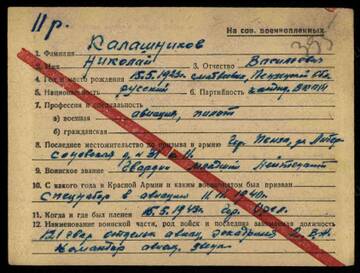 11р.
На сов. военнопленных
1. Фамилия Калашников
2. Имя Николай 3. Отчество Васильевич
4. Год и место рождения 15.5.1923г.
5. Национальность русский 6. Партийность канд. ВКП(б)
7. Профессия и специальность
а) военная авиация, пилот
б) гражданская
8. Последнее местожительство до призыва в армию гор. Пенза, ул.
9. Воинское звание Гвардии младший лейтенант
10. С какого года в Красной Армии и каким военкоматом был призван
в авиации 1940г.
11. Когда и где был пленен 15.5.1943г. гор. Орел.
12. Наименование воинской части, род войск и последняя занимаемая должность
121 гвар. авиац.
Командир авиац. звена